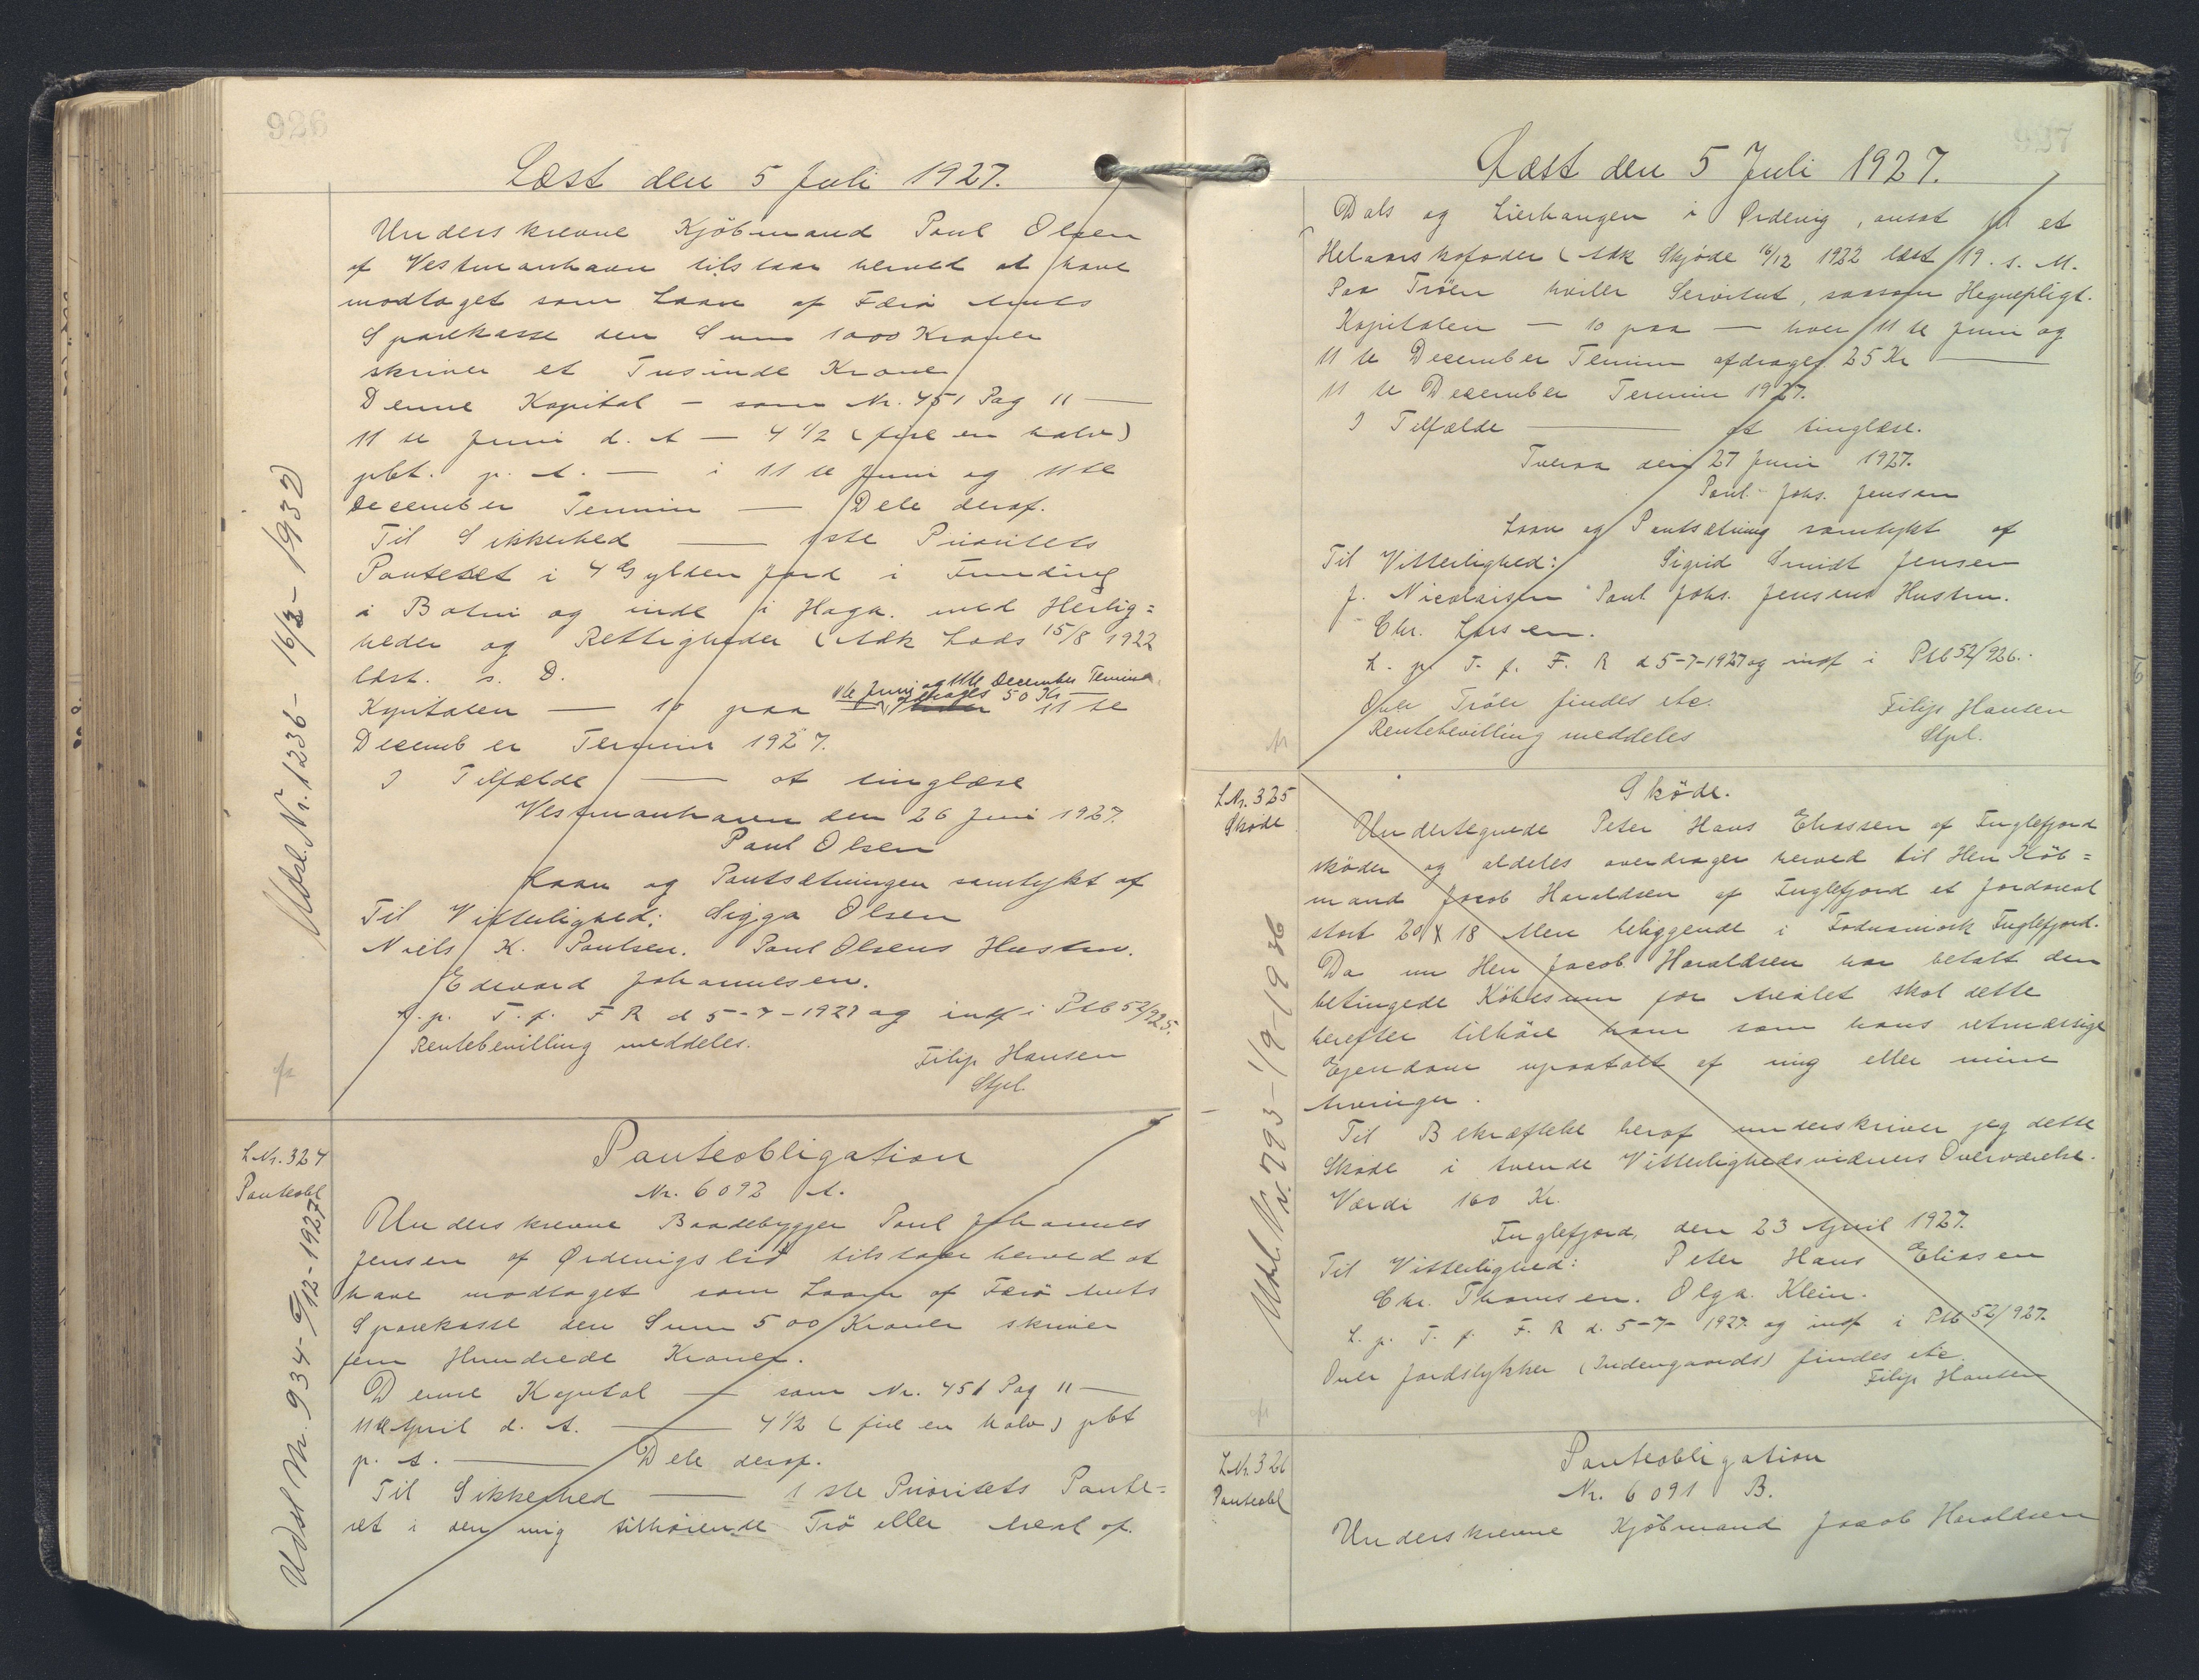 926
Læst den 5 Juli 1927.
Underskrevne Kjöbmand Poul Olsen
af Vestmanhavn tilstaar herved at have
modtaget som Laan af Færö Amts
Sparekasse den Sum 1000 Kroner
skriver et Tusinde Krone
Denne Kapital — som Nr. 451 Pag 11 —
11te Juni d. A — 4 1/2 (fire en halv)
pbt. p. A. — i 11te Juni og 11te
December Termin — Dele deraf.
Til Sikkerhed — 1ste Prioritets
Panteret i 4 Gylden Jord i Funding
i Botni og inde i Haga med Herlig=
heder og Rettigheder (Adk Lods 15/8 1922
læst s. D.
11te Juni og 11te December Termin
afdrages 50 Kr —
Kapitalen — 10 paa — 11te
December Termin 1927.
I Tilfælde — at tinglæse
Vestmanhavn den 26 Juni 1927.
Poul Olsen
Laan og Pantsætningen samtykt af
Til Vitterlighed: Sigga Olsen
Niels K. Poulsen. Poul Olsens Hustru.
Edevard Johannesen.
L. p. T. f. F R d 5-7-1927 og indf i Ptb 52/925.
Rentebevilling meddeles.
Filip Hansen
Stpl.
Udsl. Nr. 1236 - 16/3 - 1932
L Nr. 324
Panteobl
Panteobligation
Nr. 6092 A.
Underskrevne Baadebygger Poul Johannes
Jensen af Ørdevigslid tilstaar herved at
have modtaget som Laan af Færö Amts
Sparekasse den Sum 500 Kroner skriver
fem Hundrede Kroner.
Denne Kapital — som Nr. 451 Pag 11 —
11te April d. A. — 4 1/2 (fire en halv) pbt
p. A. — Dele deraf.
Til Sikkerhed — 1ste Prioritets Pante=
ret i den mig tilhörende Trö eller Areal af
Udsl Nr. 934 - 6/12 - 1927
927
Læst den 5 Juli 1927.
Dals og Lierhangen i Ørdevig, ansat til et
Helaars kofoder (Adk Skjøde 16/12 1922 læst 19. s. M.
Paa Trøen hviler Servitut, saasom Hegnepligt.
Kapitalen — 10 paa — hver 11te Juni og
11te December Termin afdrages 25 Kr —
11te December Termin 1927.
I Tilfælde — at tinglæse.
Tveraa den 27 Juni 1927.
Poul Johs. Jensen
Laan og Pantsætning samtykt af
Til Vitterlighed: Sigrid Smidt Jensen
J. Nicolaisen Poul Johs. Jensens Hustru.
Chr. Larsen.
L. p. T. f. F. R d 5-7-1927 og indf i Ptb 52/926.
Over Tröen findes etc.
Rentebevilling meddeles
Filip Hansen
Stpl.
L Nr. 325
Skøde
Sköde.
Undertegnede Peter Hans Eliassen af Fuglefjord
sköder og aldeles overdrager herved til Herr Köb=
mand Jacob Haraldsen af Fuglefjord et Jordareal
stort 20 X 18 Alen beliggende i Fuglefjord.
Da nu Herr Jacob Haraldsen har betalt den
betingede Købesum for Arealet skal dette
herefter tilhöre ham som hans retmæssige
Ejendom upaatalt af mig eller mine
Arvinger.
Til Bekræftelse heraf underskriver jeg dette
Sköde i tvende Vitterlighedsvidners Overværelse.
Værdi 160 Kr.
Fuglefjord, den 23 April 1927.
Til Vitterlighed: Peter Hans Eliasen
Chr. Thomsen. Olga Klein.
L. p. T. f. F. R d. 5-7- 1927 og indf i Ptb 52/927.
Over Jordstykker (Indengaards) findes etc.
Filip Hansen
Udsl. Nr. 793 - 1/9 - 1936
L Nr. 326
Panteobl
Panteobligation
Nr. 6091 B.
Underskrevne Kjöbmand Jacob Haraldsen